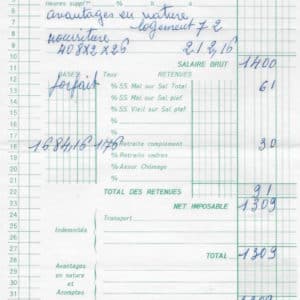 5
Heures suppl
6
avantages en nature
7
logement 72
8
nourriture
9
408X2X26 212,16
10
11
SALAIRE BRUT 1400
12
BASES Taux RETENUES
13
forfait % SS. Mal sur Sal Total 61
14
% SS. Mal sur Sal plaf
15
% SS. Vieil sur Sal plaf
16
17
18
1684,16 176 % Retraite complément 30
19
% Retraite cadres
20
% Assur. Chômage
21
%
22
TOTAL DES RETENUES 91
23
NET IMPOSABLE 1309
24
Transport
25
Indemnités
26
27
28
TOTAL 1309
29
Avantages
30
en nature
et
31
Acomptes